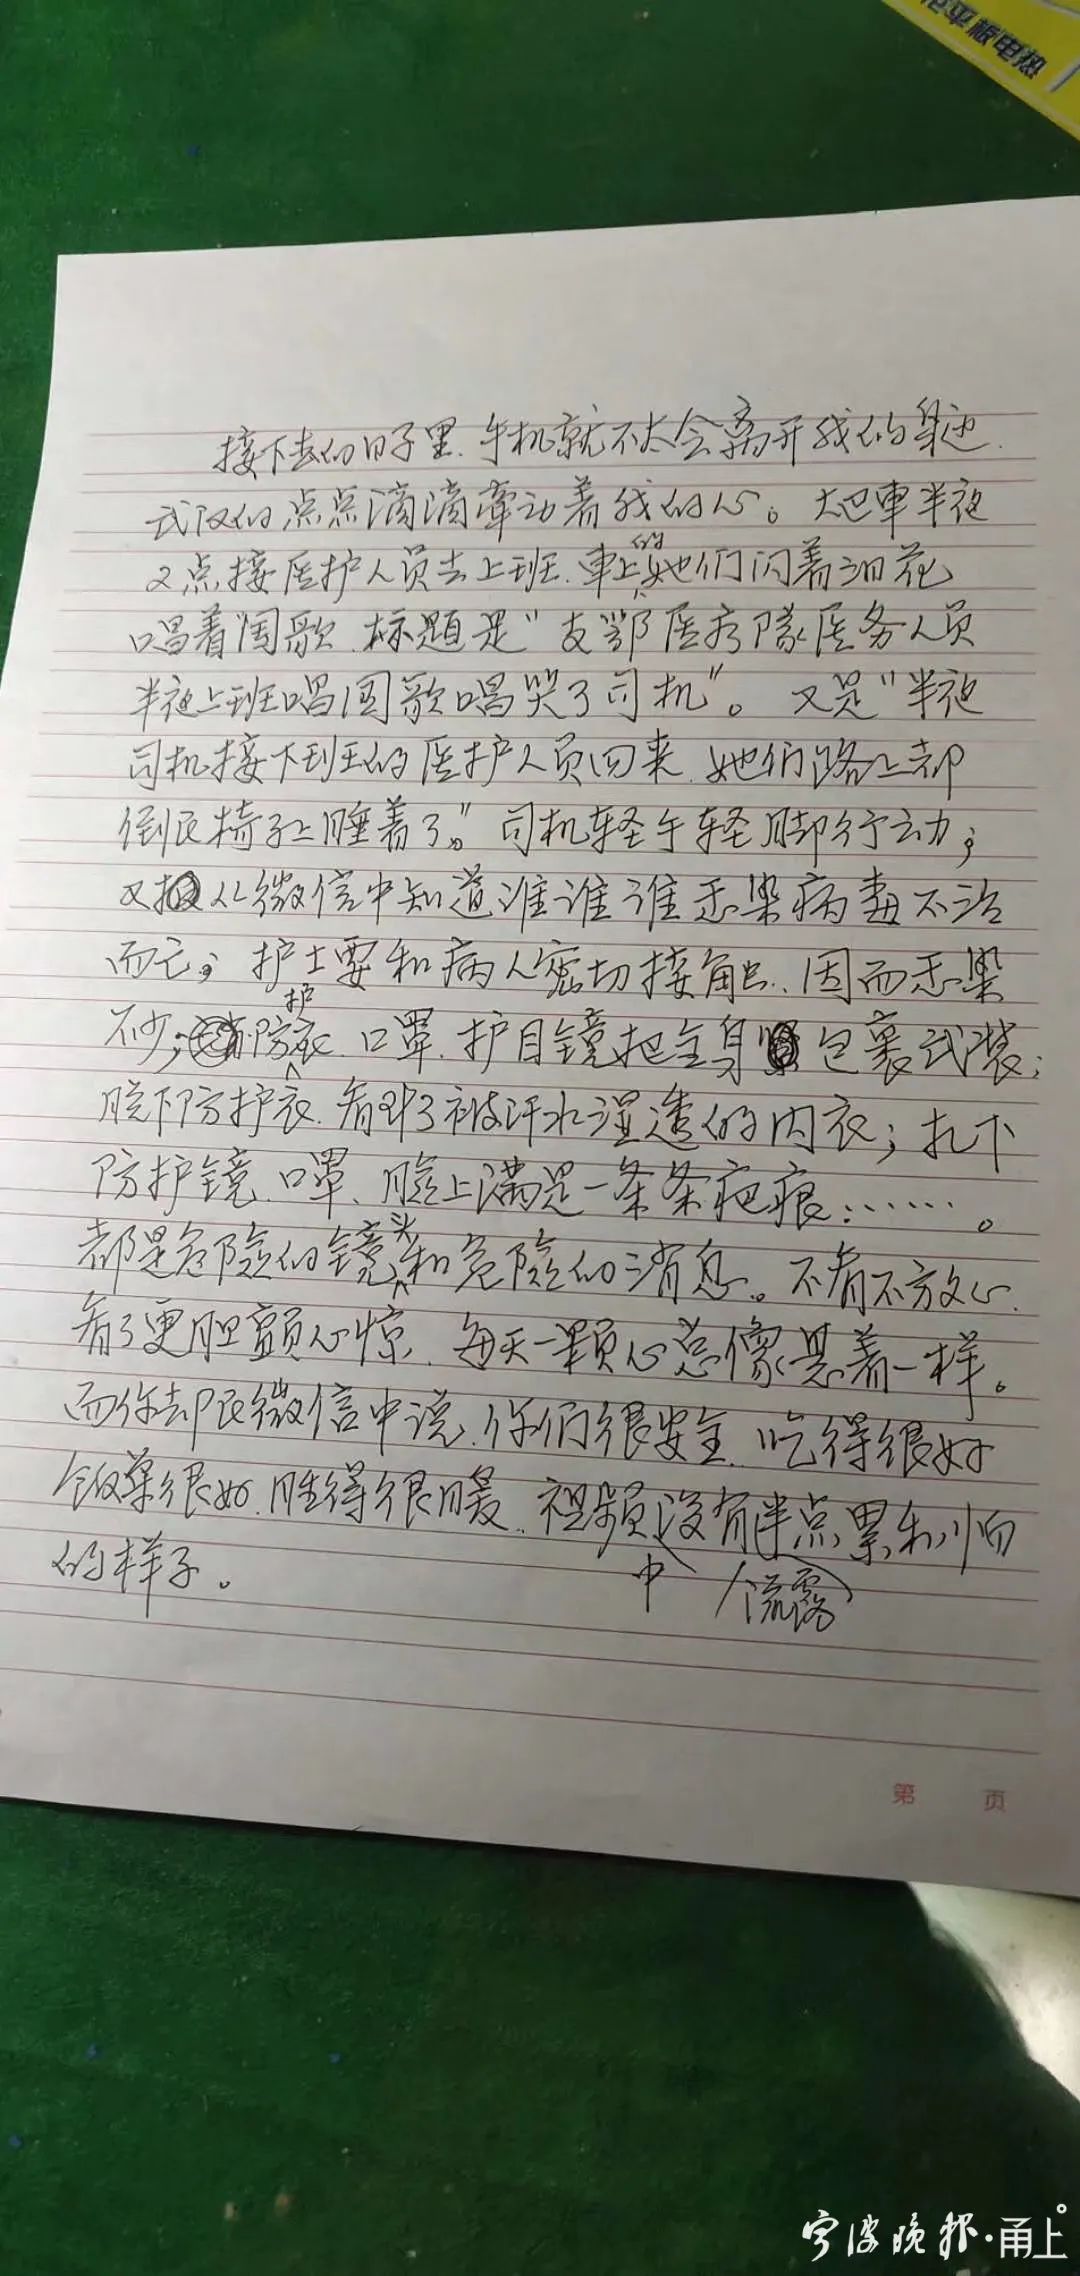 平板电热
接下去的日子里、手机就不太会离开我的身边.
武汉的点点滴滴牵动着我的心。大巴車半夜
2点接医护人员去上班、車上的她们闪着泪花
唱着"国歌、标题是"支鄂医疗隊医务人员
半夜上班唱国歌唱哭了司机"。又是"半夜
司机接下到班的医护人员回来、她们路上都
倒在椅子上睡着了。"司机轻手轻脚行动；
又从微信中知道谁谁谁感染病毒不治
而亡；护士要和病人密切接触、因而感染
不少；防护衣、口罩、护目镜把全身包裹武装；
脱下防护衣、看到了被汗水湿透的内衣；扎下
防护镜、口罩、脸上满是一条条疤痕……。
都是危险的镜头和危险的消息。不看不放心、
看了更胆颤心惊、每天一颗心总像悬着一样。
而你却在微信中说、你们很安全、吃得很好
饭菜很好、睡得很暖、视频中没有流露半点累和怕
的样子。
第 页
宁波晚报·甬上